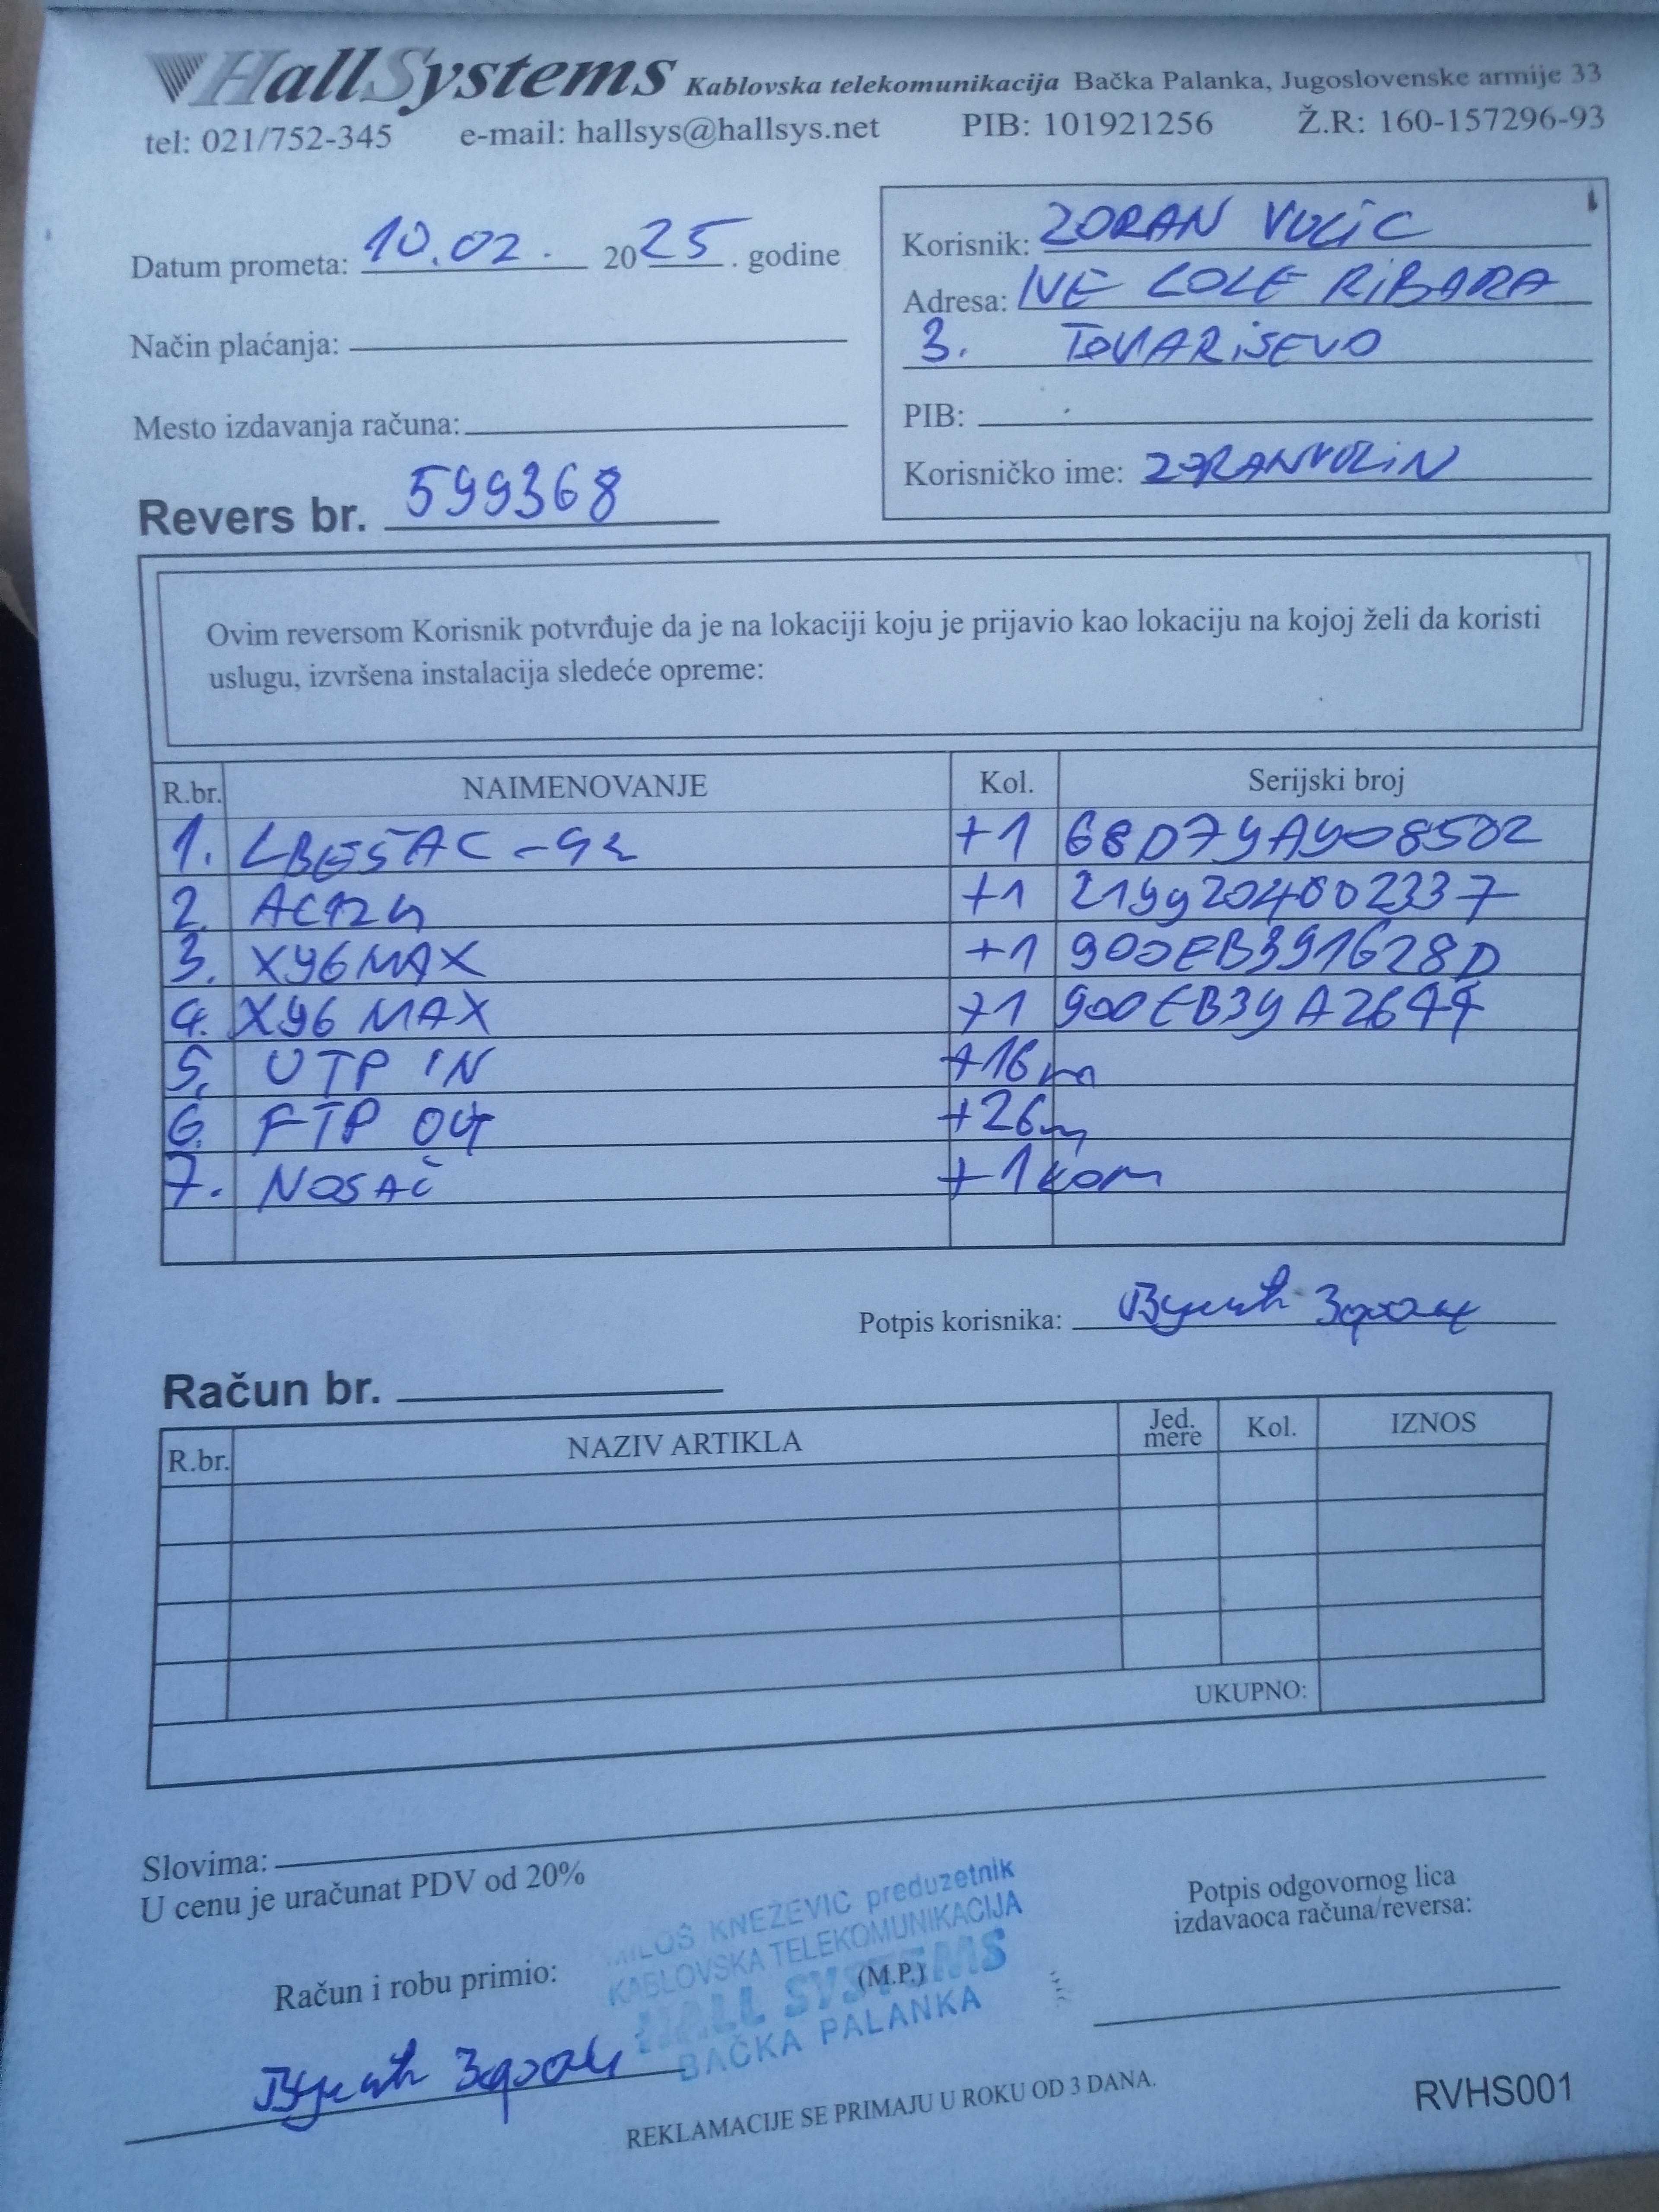 HallSystems Kablovska telekomunikacija Bačka Palanka, Jugoslovenske armije 33
tel: 021/752-345 e-mail: hallsys@hallsys.net PIB: 101921256 Ž.R: 160-157296-93
Datum prometa: 10.02. 2025. godine
Način plaćanja:
Mesto izdavanja računa:
Revers br. 599368
Korisnik: ZORAN VUCIC
Adresa: IVE LOLE RIBARA
3. TOVARISEVO
PIB:
Korisničko ime:
Ovim reversom Korisnik potvrđuje da je na lokaciji koju je prijavio kao lokaciju na kojoj želi da koristi
uslugu, izvršena instalacija sledeće opreme:
R.br. NAIMENOVANJE Kol. Serijski broj
1. +1 68D79A908502
2. +1 2199204002337
3. X96MAX +1 900EB391628D
4. X96 MAX +1
5. UTP IN +16m
6. FTP OUT +26m
7. NOSAČ +1 kom
Potpis korisnika: Вучић Зоран
Račun br.
R.br. NAZIV ARTIKLA Jed. mere Kol. IZNOS
UKUPNO:
Slovima:
U cenu je uračunat PDV od 20%
Račun i robu primio:
Вучић Зоран
MILOŠ KNEŽEVIĆ preduzetnik
KABLOVSKA TELEKOMUNIKACIJA
HALL SYSTEMS
BAČKA PALANKA
(M.P.)
Potpis odgovornog lica
izdavaoca računa/reversa:
REKLAMACIJE SE PRIMAJU U ROKU OD 3 DANA.
RVHS001